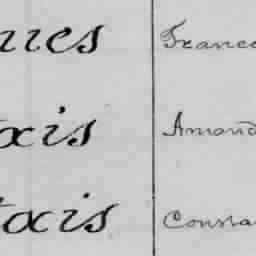 ues France
xis Amand
taxis Consta